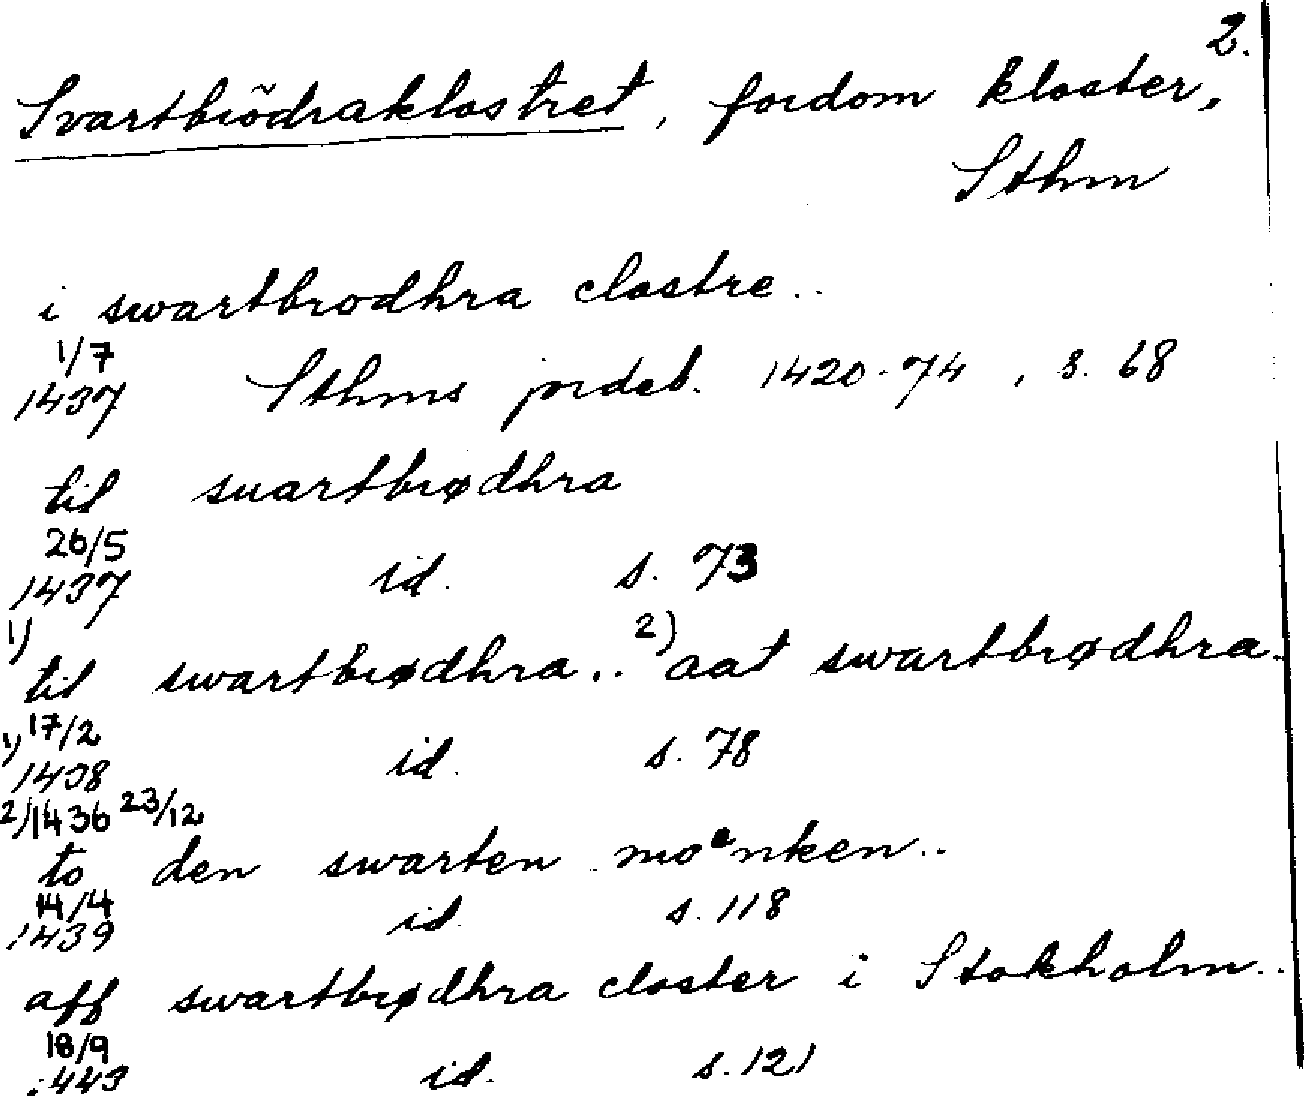 2.
Svartbrödraklostret, fordom kloster,
Sthm
i swartbrodhra clostre..
1/7
1437 Sthms jordeb. 1420-74, s. 68
til suartbrødhra
26/5
1437 id. s. 73
1) til swartbrødhra.. 2) aat swartbrødhra..
1) 17/2
1438 id. s. 78
2) 1436 23/12
to den swarten moͤnken..
14/4
1439 id. s. 118
aff swartbrødhra closter i Stokholm..
18/9
1443 id. s. 121